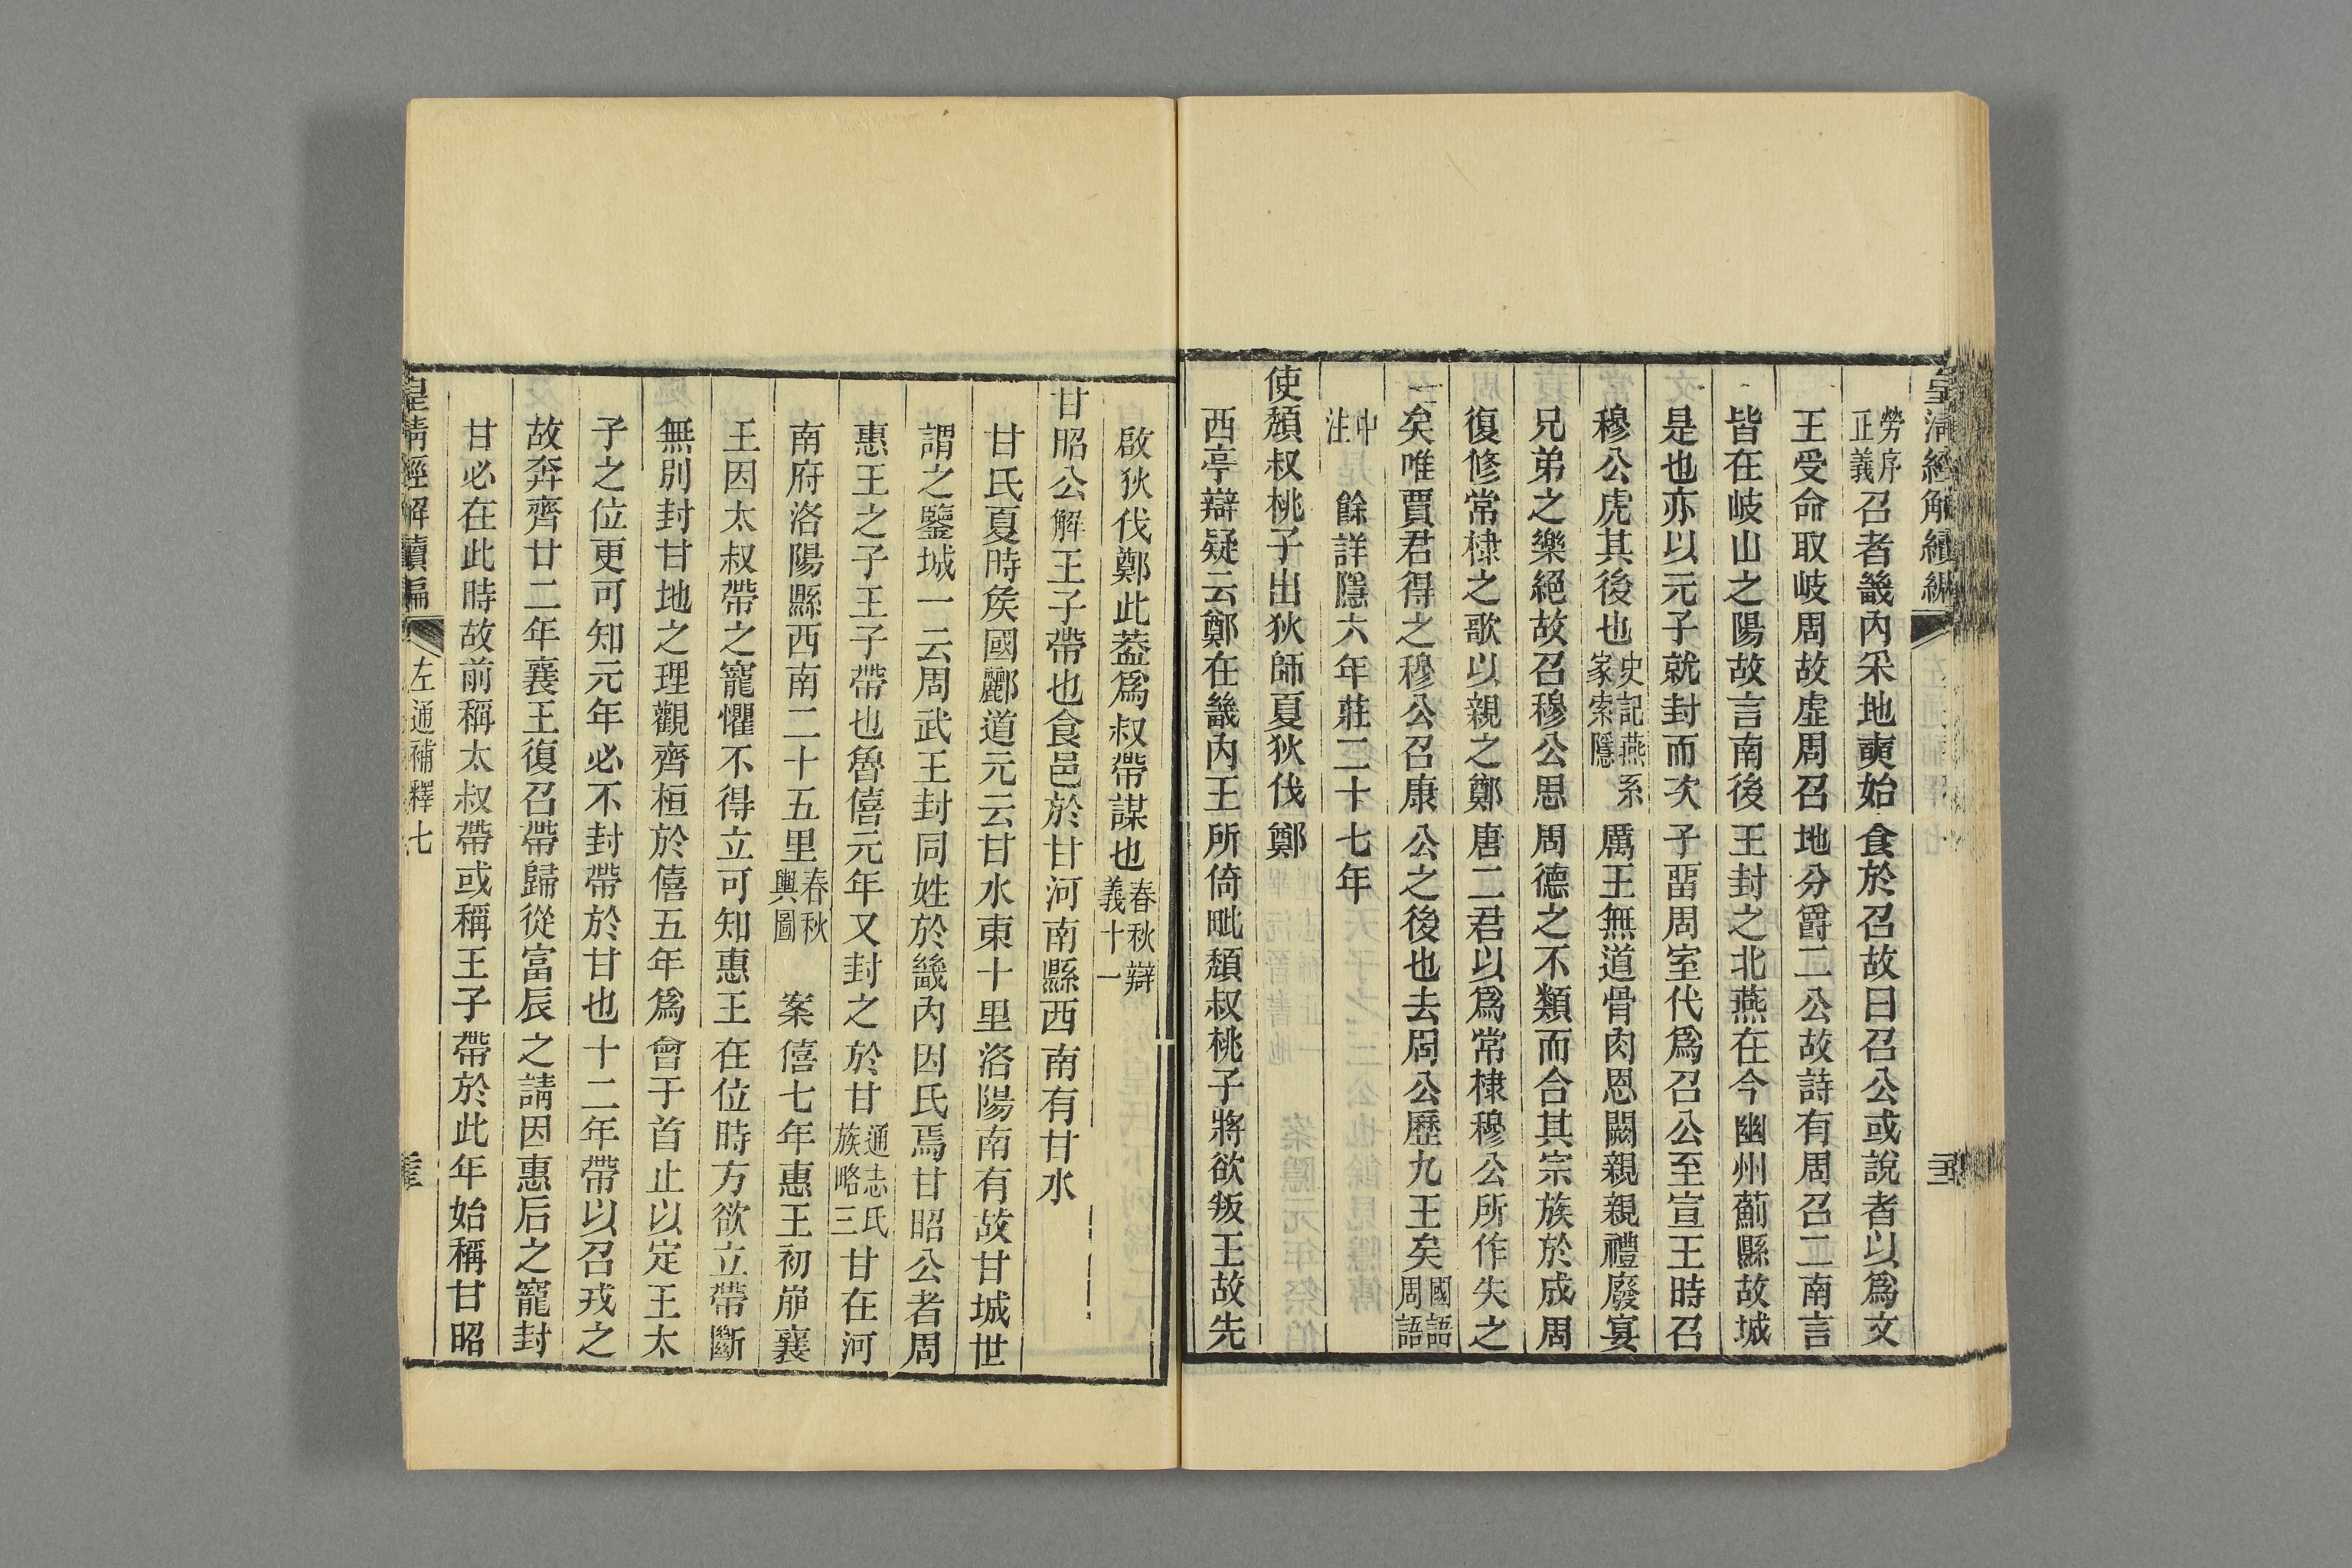 皇清經解續編
勞序正義召者畿內采地奭始食於召故曰召公或說者以爲文
王受命取岐周故虛周召地分爵二公故詩有周召二南言
皆在岐山之陽故言南後王封之北燕在今幽州薊縣故城
是也亦以元子就封而次子畱周室代爲召公至宣王時召
穆公虎其後也史記燕系家索隱厲王無道骨肉恩闕親親禮廢宴
兄弟之樂絕故召穆公思周德之不類而合其宗族於成周
復修常棣之歌以親之鄭唐二君以爲常棣穆公所作失之
矣唯賈君得之穆公召康公之後也去周公歷九王矣國語周語
中注餘詳隱六年莊二十七年
使頹叔桃子出狄師夏狄伐鄭
西亭辯疑云鄭在畿內王所倚毗頹叔桃子將欲叛王故先
啟狄伐鄭此葢爲叔帶謀也春秋辯義十一
甘昭公解王子帶也食邑於甘河南縣西南有甘水
甘氏夏時矦國酈道元云甘水東十里洛陽南有故甘城世
謂之鑒城一云周武王封同姓於畿內因氏焉甘昭公者周
惠王之子王子帶也魯僖元年又封之於甘通志氏族略三甘在河
南府洛陽縣西南二十五里春秋輿圖　案僖七年惠王初崩襄
王因太叔帶之寵懼不得立可知惠王在位時方欲立帶斷
無別封甘地之理觀齊桓於僖五年爲會于首止以定王太
子之位更可知元年必不封帶於甘也十二年帶以召戎之
故奔齊廿二年襄王復召帶歸從富辰之請因惠后之寵封
甘必在此時故前稱太叔帶或稱王子帶於此年始稱甘昭
皇清經解續編　左通補釋七